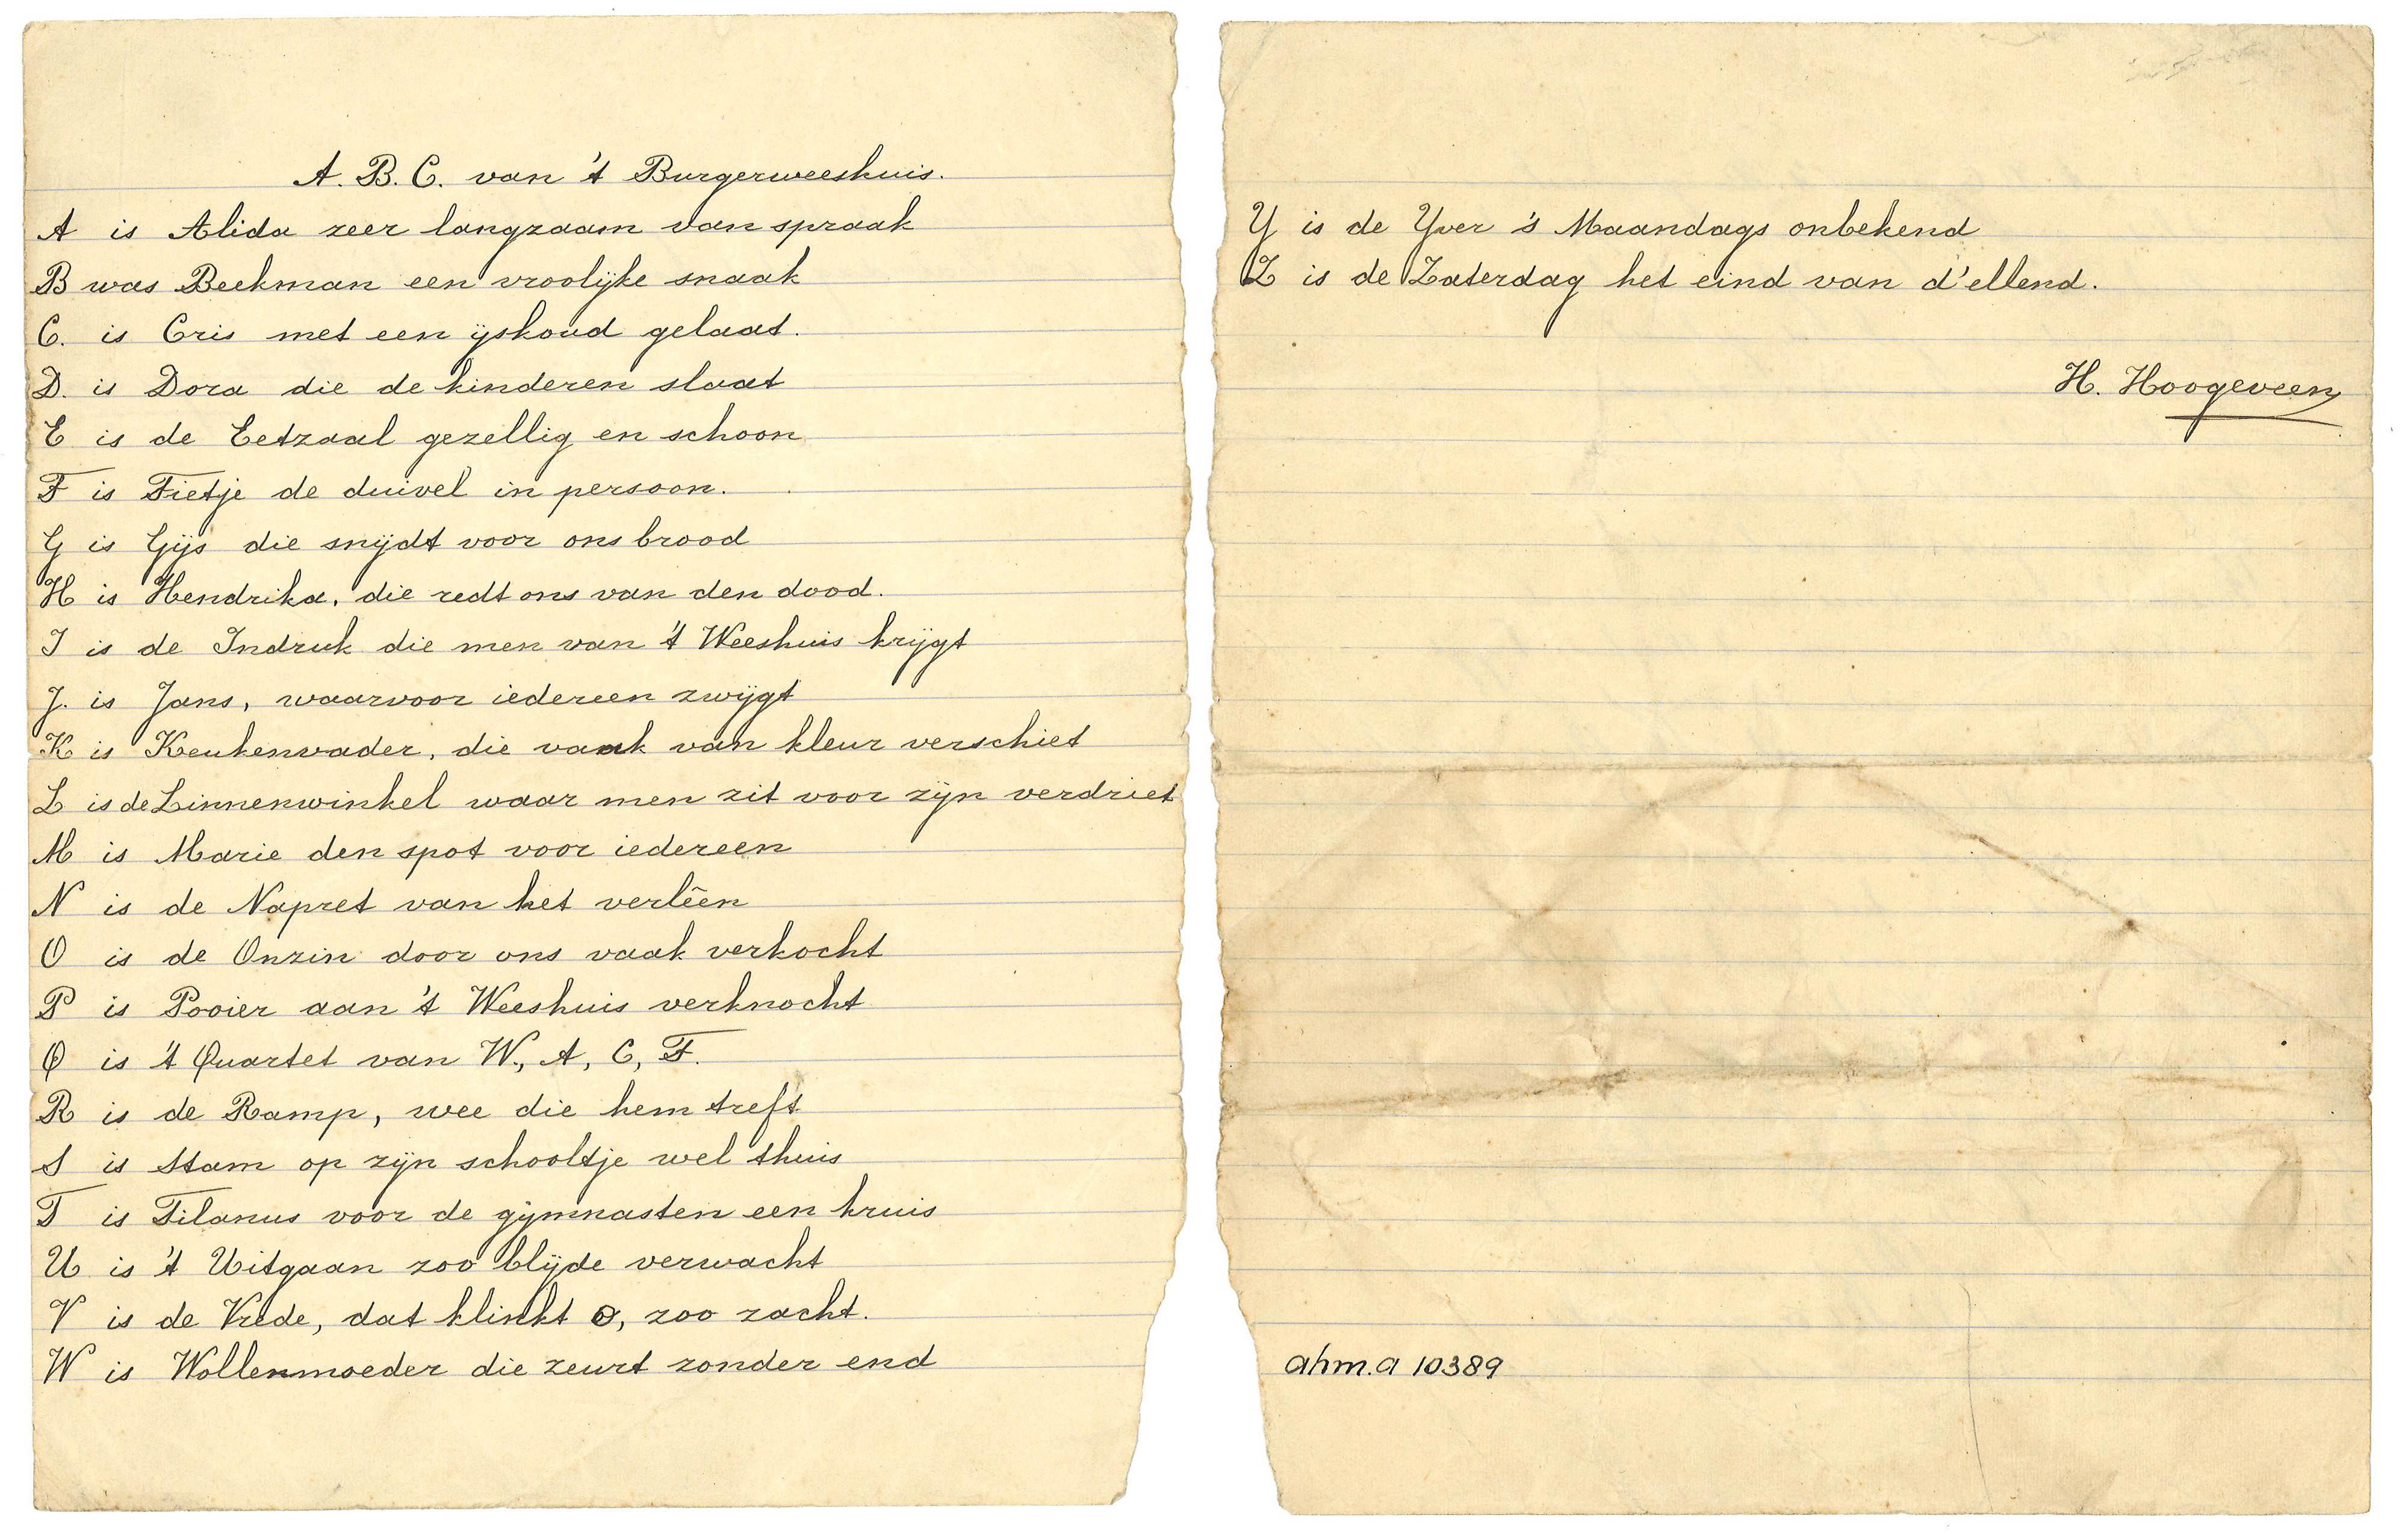 A. B. C. van 't Burgerweeshuis.
A is Alida zeer langzaam van spraak
B was Beekman een vroolijke snaak
C. is Cris met een ijskoud gelaat.
D. is Dora die de kinderen slaat
E is de Eetzaal gezellig en schoon
F is Fietje de duivel in persoon.
G is Gijs die snijdt voor ons brood
H is Hendrika, die redt ons van den dood.
I is de Indruk die men van 't Weeshuis krijgt
J. is Jans, waarvoor iedereen zwijgt
K is Keukenvader, die vaak van kleur verschiet
L is de Linnenwinkel waar men zit voor zijn verdriet
M is Marie den spot voor iedereen
N is de Napret van het verlêên
O is de Onzin door ons vaak verkocht
P is Pooier aan 't Weeshuis verknocht
Q is 't Quartet van W., A, C, F.
R is de Ramp, wee die hem treft
S is Stam op zijn schooltje wel thuis
T is Tilanus voor de gymnasten een kruis
U is 't Uitgaan zoo blijde verwacht
V is de Vrede, dat klinkt o, zoo zacht.
W is Wollenmoeder die zeurt zonder end
Y is de Yver 's Maandags onbekend
Z is de Zaterdag het eind van d'ellend.
H. Hoogeveen
ahm.a 10389